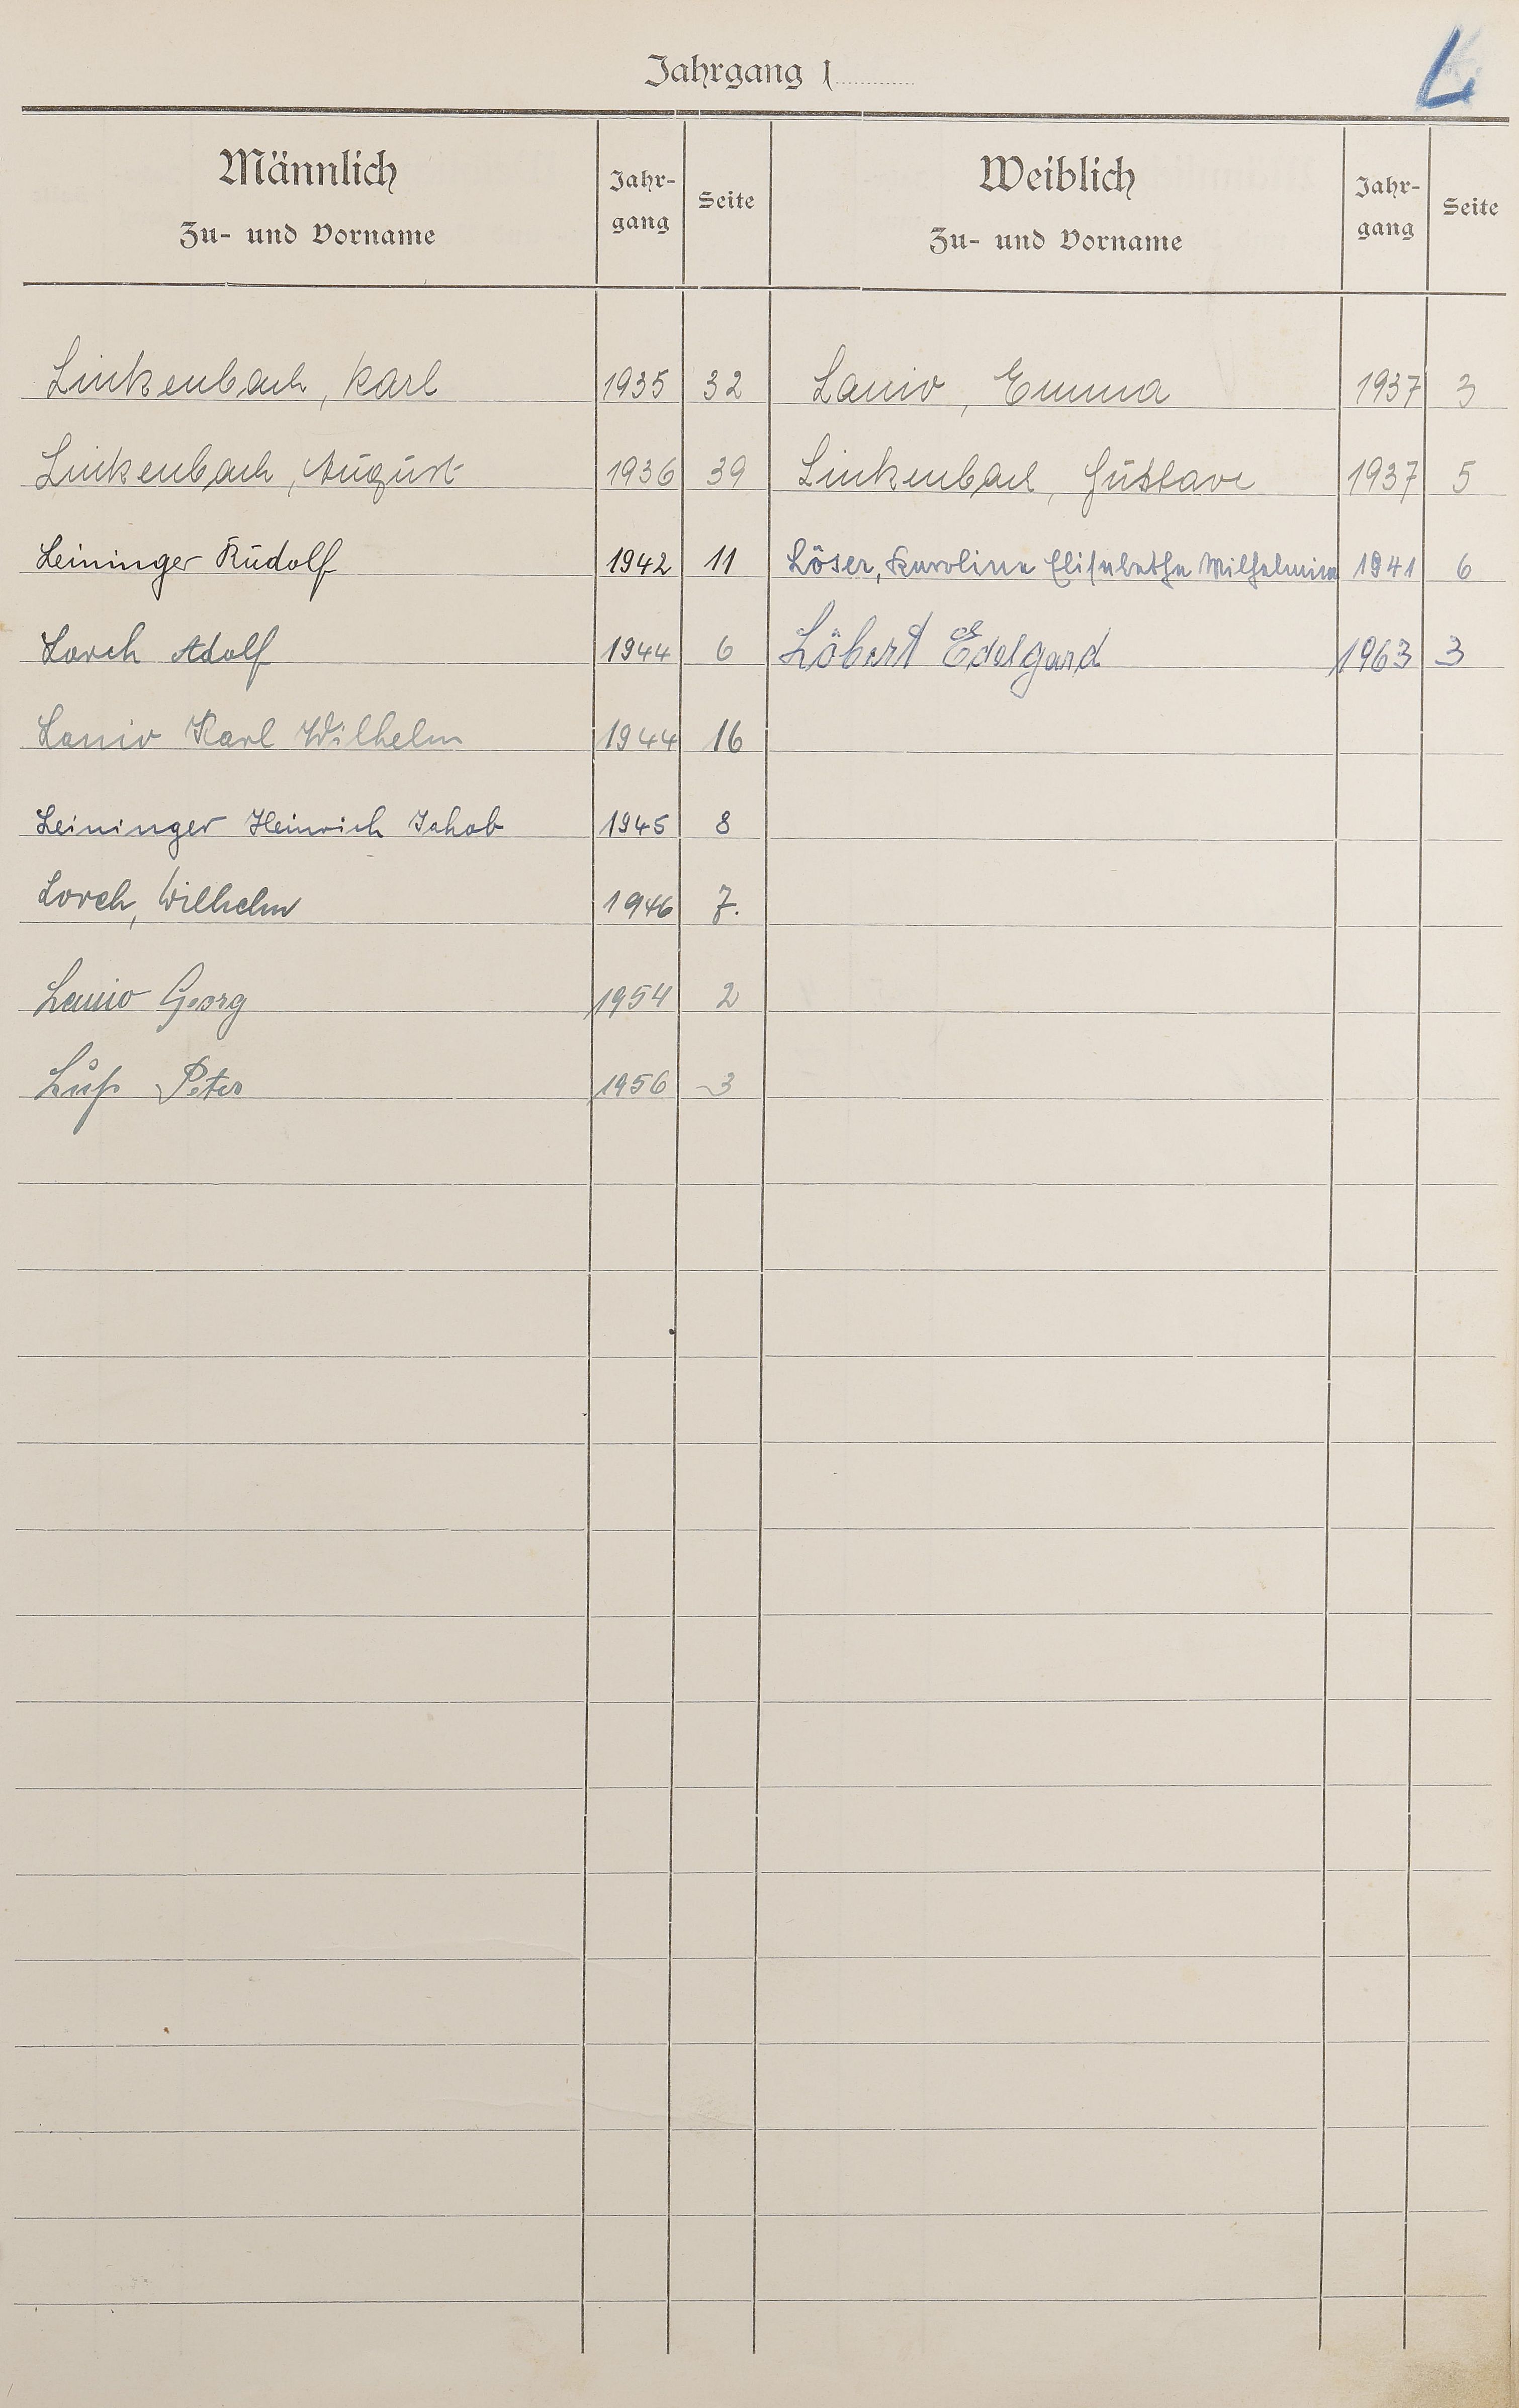 Jahrgang 1
L
Männlich
Zu- und Vorname
Jahr-
gang
Seite
Weiblich
Zu- und Vorname
Jahr-
gang
Seite
Linkenbach, Karl 1935 32 Lanio, Emma 1937 3
Linkenbach, August 1936 39 Linkenbach, Gustave 1937 5
Leininger Rudolf 1942 11 Löser, Karoline Elisabetha Wilhelmina 1941 6
Lorch Adolf 1944 6 Löbert Edelgard 1963 3
Lanio Karl Wilhelm 1944 16
Leininger Heinrich Jakob 1945 8
Lorch, Wilhelm 1946 7.
Lanio Georg 1954 2
Peter 1956 3